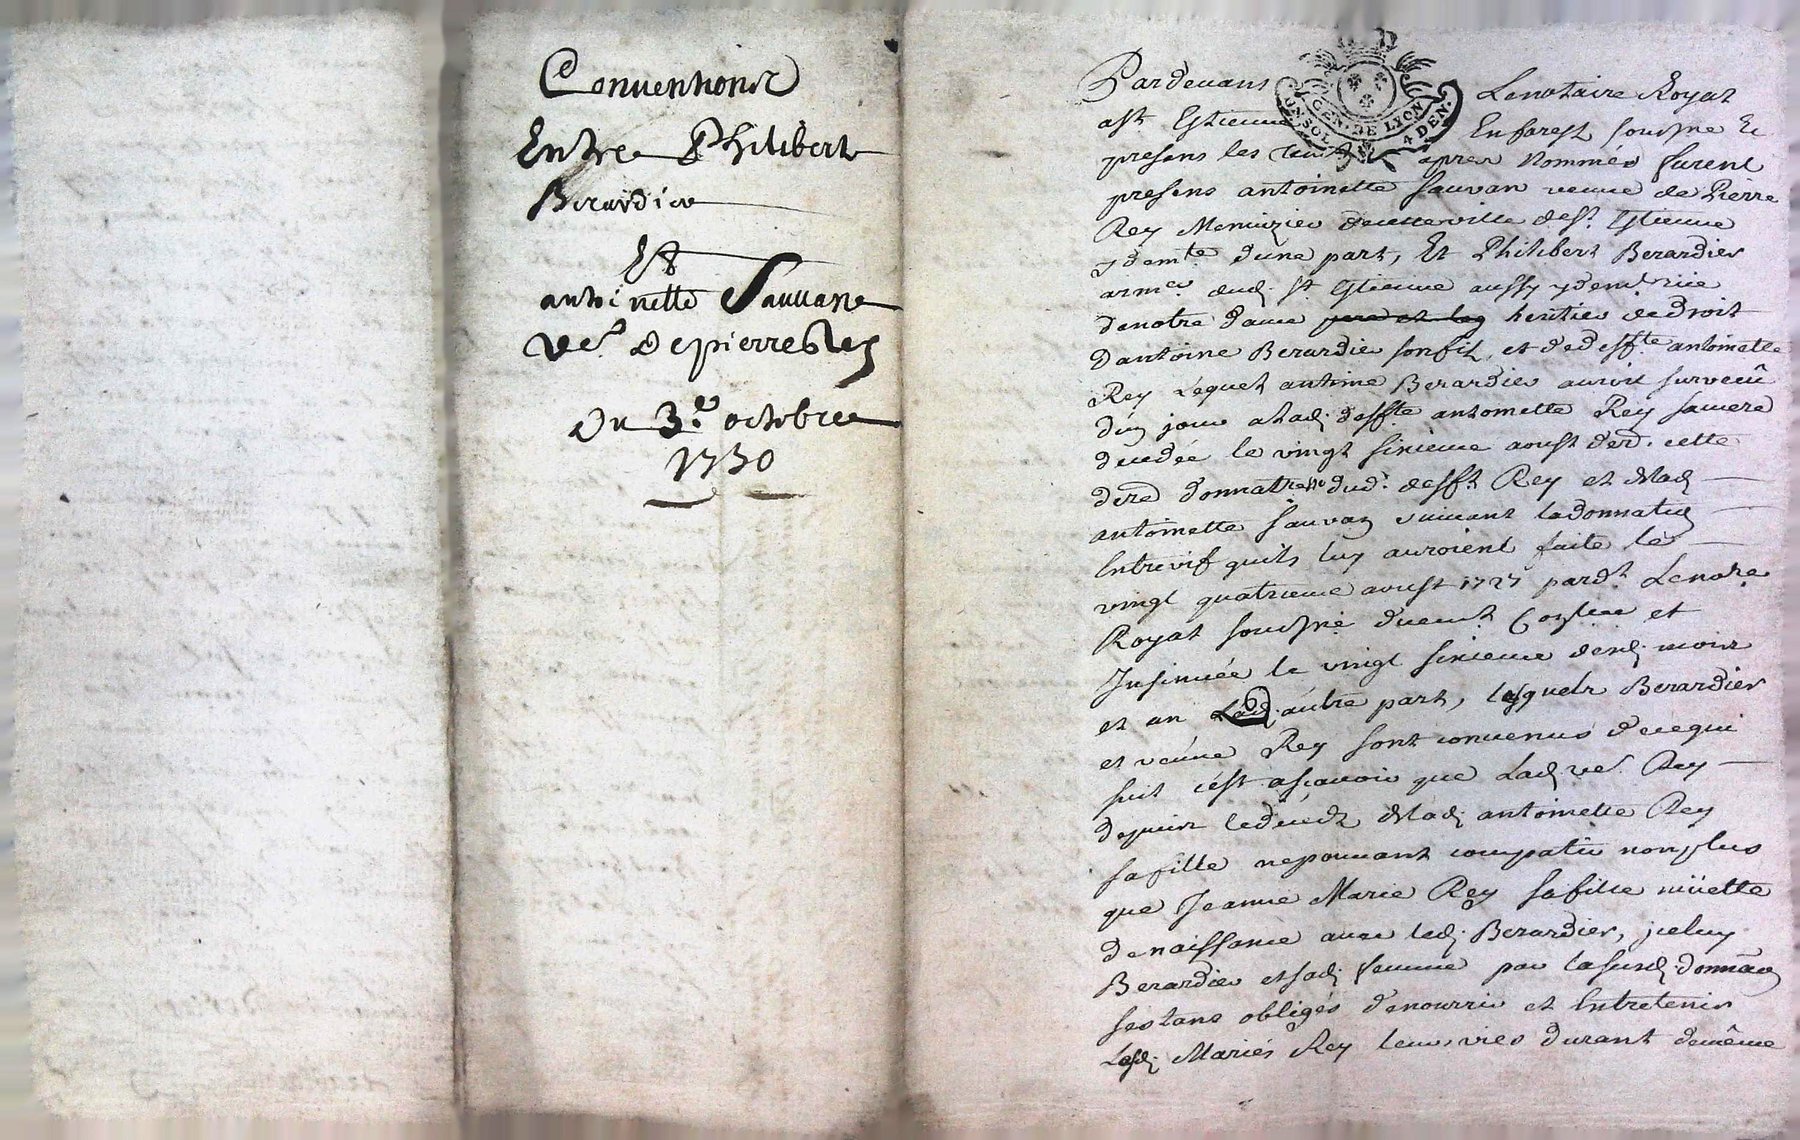 Conuentions
Entre Philibert
Berardier
Et
antoinette Sauuane
ve.e de pierre Rey
Du 3.e octobre
1730
GEN. DE LYON
UN SOL 4 DEN.
Pardeuant Le notaire Royal
a St Estienne En forest soussné Et
presens les temoins apres Nommés furent
presens antoinette Sauvan veuue de Pierre
Rey Menuizier de cette ville de St Estienne
y demte d'une part, Et Philibert Berardier
armer dud. St Estienne aussy y demt rüe
de notre dame heritier de droit
d'antoine Berardier son fils, et de deffte antoinette
Rey Lequel antoine Berardier auroit survecû
d'un jour a lad. deffte antoinette Rey sa mere
decedée le vingt sixieme aoust der. cette
dere donnatre dud. defft Rey et de lad.
antoinette Sauvan suivant la donnation
Entrevif quils luy auroient faite le
vingt quatrieme aoust 1727 pardt Le notre
Royal soussné duemt Conlee et
Insinuée le vingt sixieme desd. mois
et an d'autre part, lesquels Berardier
et veuue Rey sont conuenus de ce qui
suit c'est ascauoir que Lad. ve. Rey
depuis le décéds de lad. antoinette Rey
sa fille ne pouuant compatir non plus
que Jeanne Marie Rey sa fille müette
de naissance auec led. Berardier, jceluy
Berardier et sad. femme par la susd. donnaon
s'estans obligés de nourrir et Entretenir
Lesd. Mariés Rey leurs vies durant de même